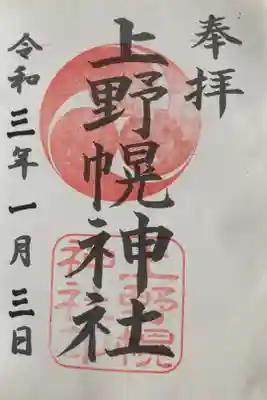 奉拝
上野幌神社
上野幌
神社
令和三年一月三日